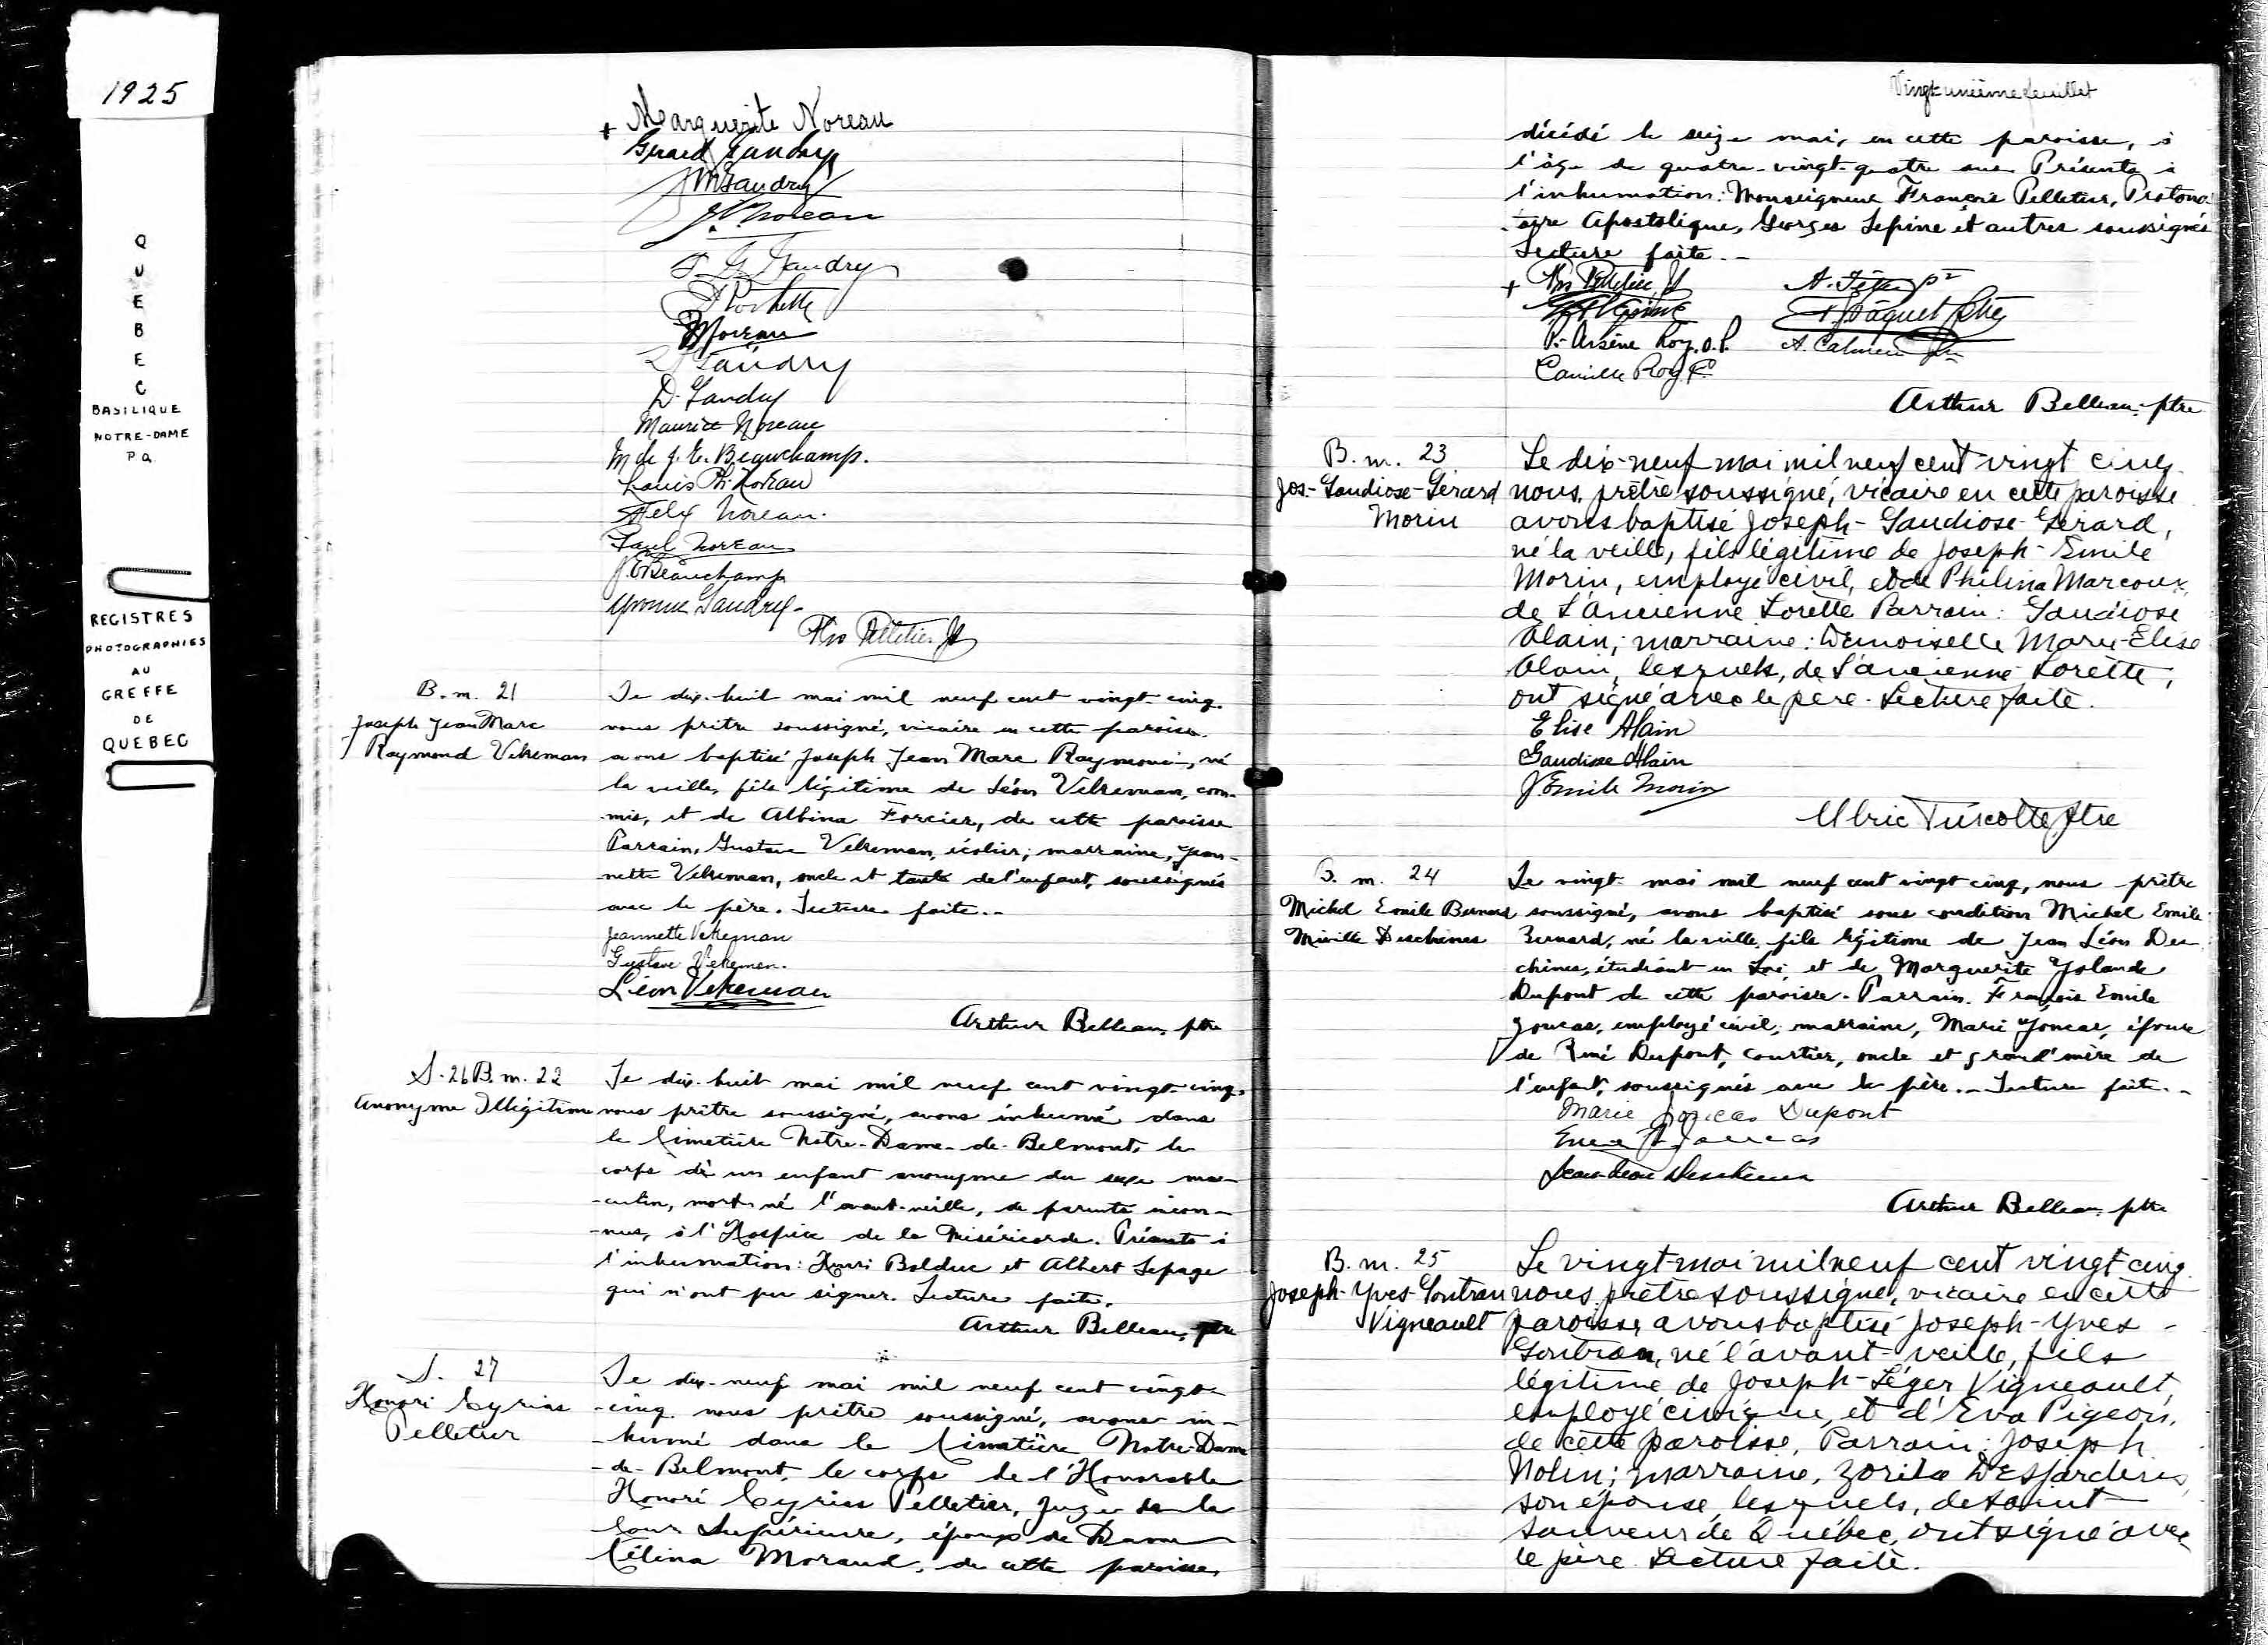 1925
QUEBEC
BASILIQUE
NOTRE-DAME
P.Q.
REGISTRES
PHOTOGRAPHIES
AU
GREFFE
DE
QUEBEC
+ Marguerite Noreau
Gérard Gaudry
Gaudry
Noreau
Gaudry
Rochette
Noreau
Gaudry
D. Gaudry
Maurice Noreau
M de J. E. Beauchamp.
Louis Ph. Noreau
Félix Noreau.
Paul Noreau
J. E. Beauchamp
Yvonne Gaudry
Frs Pelletier Pt
B. m. 21
Joseph Jean Marc
Raymond Vekeman
Le dix-huit mai mil neuf cent vingt-cinq,
nous prêtre soussigné, vicaire en cette paroisse
avons baptisé Joseph Jean Marc Raymond, né
la veille, fils légitime de Léon Vekeman, com-
-mis, et de Albina Forcier, de cette paroisse
Parrain, Gustave Vekeman, écolier; marraine, Jean-
nette Vekeman, oncle et tante de l'enfant, soussignés
avec le père. Lecture faite.-
Jeannette Vekeman
Gustave Vekeman.
Léon Vekeman
Arthur Belleau, ptre
S. 26 B. m. 22
Anonyme Illégitime
Le dix-huit mai mil neuf cent vingt-cinq,
nous prêtre soussigné, avons inhumé dans
le Cimetière Notre-Dame-de-Belmont, le
corps d'un enfant anonyme du sexe mas-
-culin, mort-né l'avant-veille, de parents incon-
-nus, à l'Hospice de la Miséricorde. Présents à
l'inhumation: Henri Bolduc et Albert Lepage
qui n'ont pu signer. Lecture faite.
Arthur Belleau, ptre
S. 27
Honoré Cyrias
Pelletier
Le dix-neuf mai mil neuf cent vingt-
-cinq nous prêtre soussigné, avons in-
-humé dans le Cimetière Notre-Dame
-de-Belmont, le corps de l'Honorable
Honoré Cyrias Pelletier, Juge de la
Cour Supérieure, époux de Dame
Célina Moraud, de cette paroisse,
Vingt-unième feuillet
décédé le seize mai, en cette paroisse, à
l'âge de quatre-vingt-quatre ans Présents à
l'inhumation: Monseigneur François Pelletier, Protono-
-taire Apostolique, Georges Lepine et autres soussignés
Lecture faite.-
+ Frs Pelletier Pt
Lépine
P. Arsène Roy. o.p.
Camille Roy
Paquet Ptre
Arthur Belleau, ptre
B. m. 23
Jos-Gaudiose-Gérard
Morin
Le dix-neuf mai mil neuf cent vingt cinq
nous, prêtre soussigné, vicaire en cette paroisse
avons baptisé Joseph-Gaudiose-Gérard,
né la veille, fils légitime de Joseph-Emile
Morin, employé civil, et de Philina Marcoux,
de L'Ancienne Lorette Parrain: Gaudiose
Alain; marraine: Demoiselle Marie-Elise
Alain, lesquels, de L'ancienne Lorette,
ont signé avec le père. Lecture faite.
Elise Alain
Gaudiose Alain
J Emile Morin
Ulric Turcotte Ptre
B. m. 24
Michel Emile Bernard
Miville Deschênes
Le vingt mai mil neuf cent vingt cinq, nous prêtre
soussigné, avons baptisé sous condition Michel Emile
Bernard, né la veille, fils légitime de Jean Léon Des
chênes, étudiant en Loi, et de Marguerite Yolande
Dupont de cette paroisse. Parrain, François Emile
Joncas, employé civil; marraine, Marie Joncas, épouse
de René Dupont, courtier, oncle et grand'mère de
l'enfant, soussignés avec le père.- Lecture faite.-
Marie Joncas Dupont
Joncas
Jean-Léon Deschênes
Arthur Belleau, ptre
B. m. 25
Joseph-Yves-Gontran
Vigneault
Le vingt-mai mil neuf cent vingt cinq
nous prêtre soussigné, vicaire en cette
paroisse, avons baptisé Joseph-Yves-
Gontran, né l'avant-veille, fils
légitime de Joseph-Léger Vigneault,
employé civique, et d'Eva Pigeon,
de cette paroisse, Parrain: Joseph
Nolin; marraine, Zorila Desjardins,
son épouse, lesquels, de saint
sauveur de Québec, ont signé avec
le père. Lecture faite.